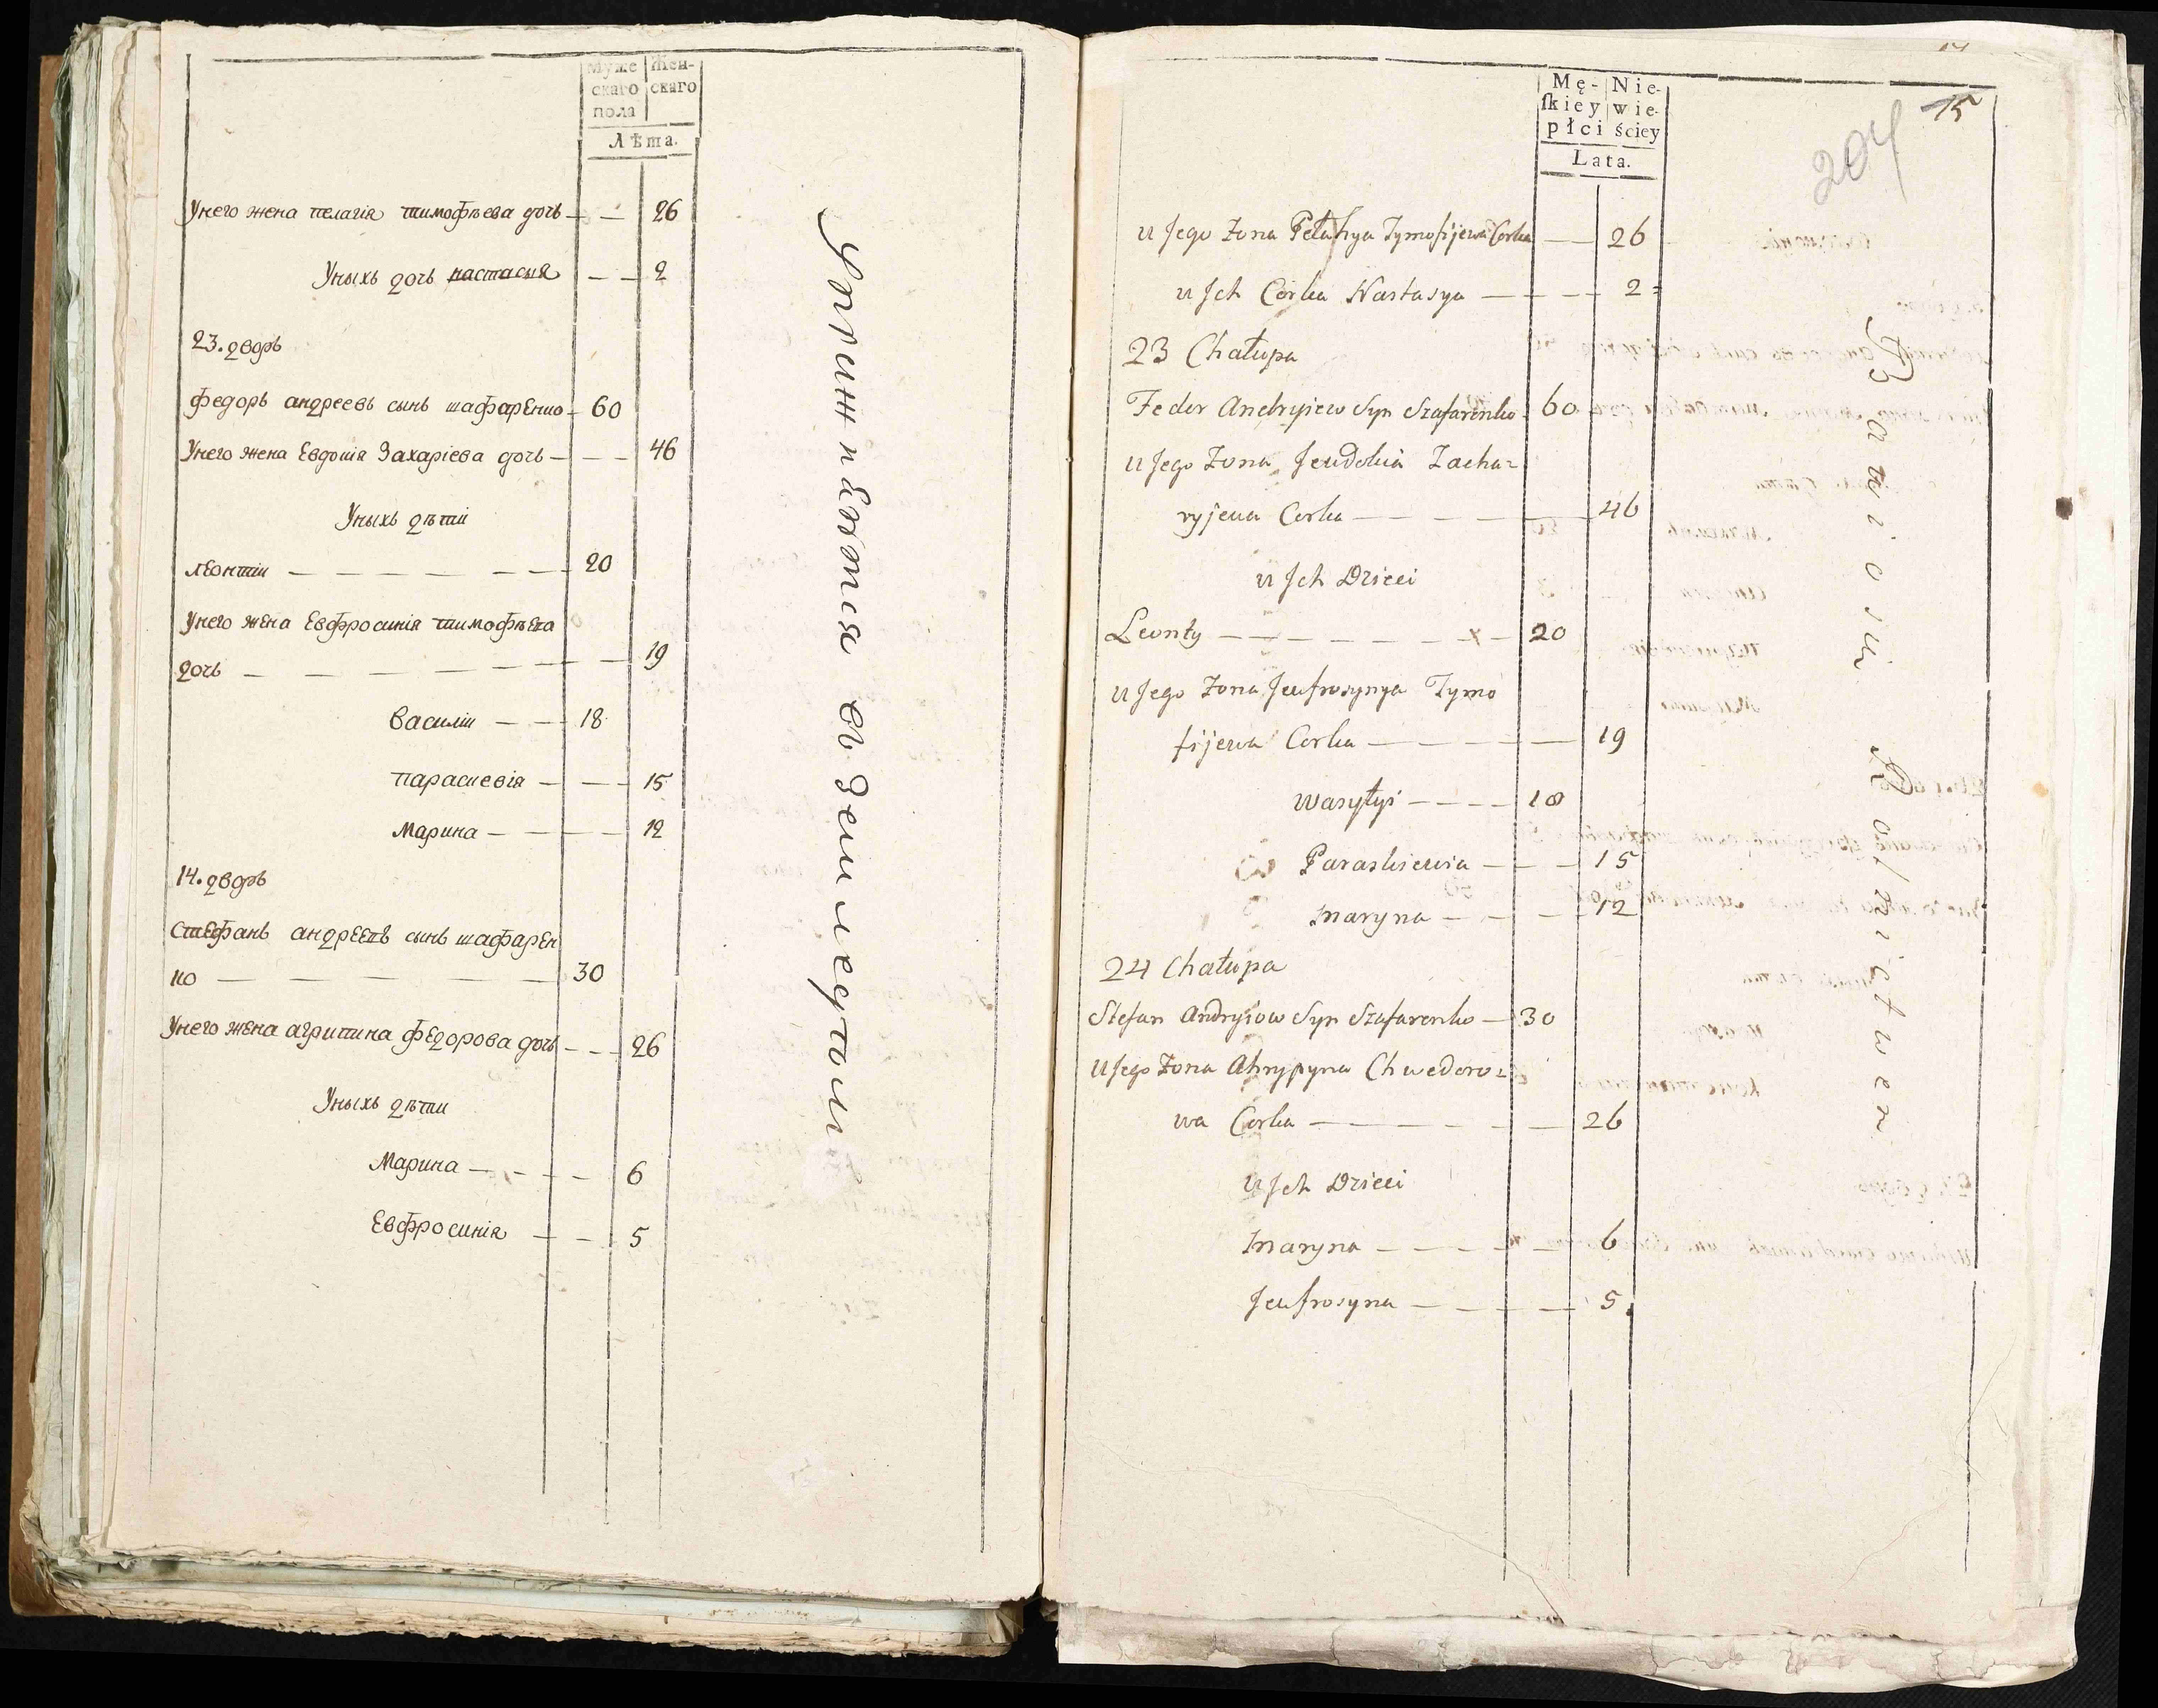 Муже
скаго
пола
Жен-
скаго
Лѣта.
Унего жена пелагія тимофѣева дочь — — 26
Уныхъ дочь настасия — — 2
23. дворъ
федоръ андреевъ сынъ шафаренко — 60
Унего жена Евдокія Захаріева дочь — — — 46
Уныхъ дѣти
леонтіи — — — — — — — 20
Унего жена Евфросинія тимофѣева
дочь — — — — — — — 19
Василіи — — 18
парасковія — — — 15
Марина — — — — 12
14. дворъ
Стефанъ андреевъ сынъ шафарен
ко — — — — — 30
Унего жена агрипина федорова дочь — — — 26
Уныхъ дѣти
Марина — — — — 6
Евфросинія — — — 5
Упражняются въ земледѣліи
14
15
204
Mę-
skiey
płci
Nie-
wie-
ściey
Lata.
u Jego Zona Pełahya Tymofijewa Corka — — 26
u Jch Corka Nastasya — — — — 2
23 Chałupa
Fedor Andryiew Syn Szafarenko — 60
u Jego Zona Jeudokia Zacha=
ryjewa Corka — — — — — — 46
u Jch Dzieci
Leonty — — — — — — x — 20
u Jego Zona Jeufrosynya Tymo
fijewa Corka — — — — — — 19
Wasyłyi — — — — 18
Paraskiewia — — — 15
Maryna — — — — 12
24 Chałupa
Stefan Andryiow Syn Szafarenko — 30
u Jego Zona Ahrypyna Chwedoro=
wa Corka — — — — — — 26
u Jch Dzieci
Maryna — — — — — 6
Jeufrosyna — — — — 5
Bawią się Rolnictwem